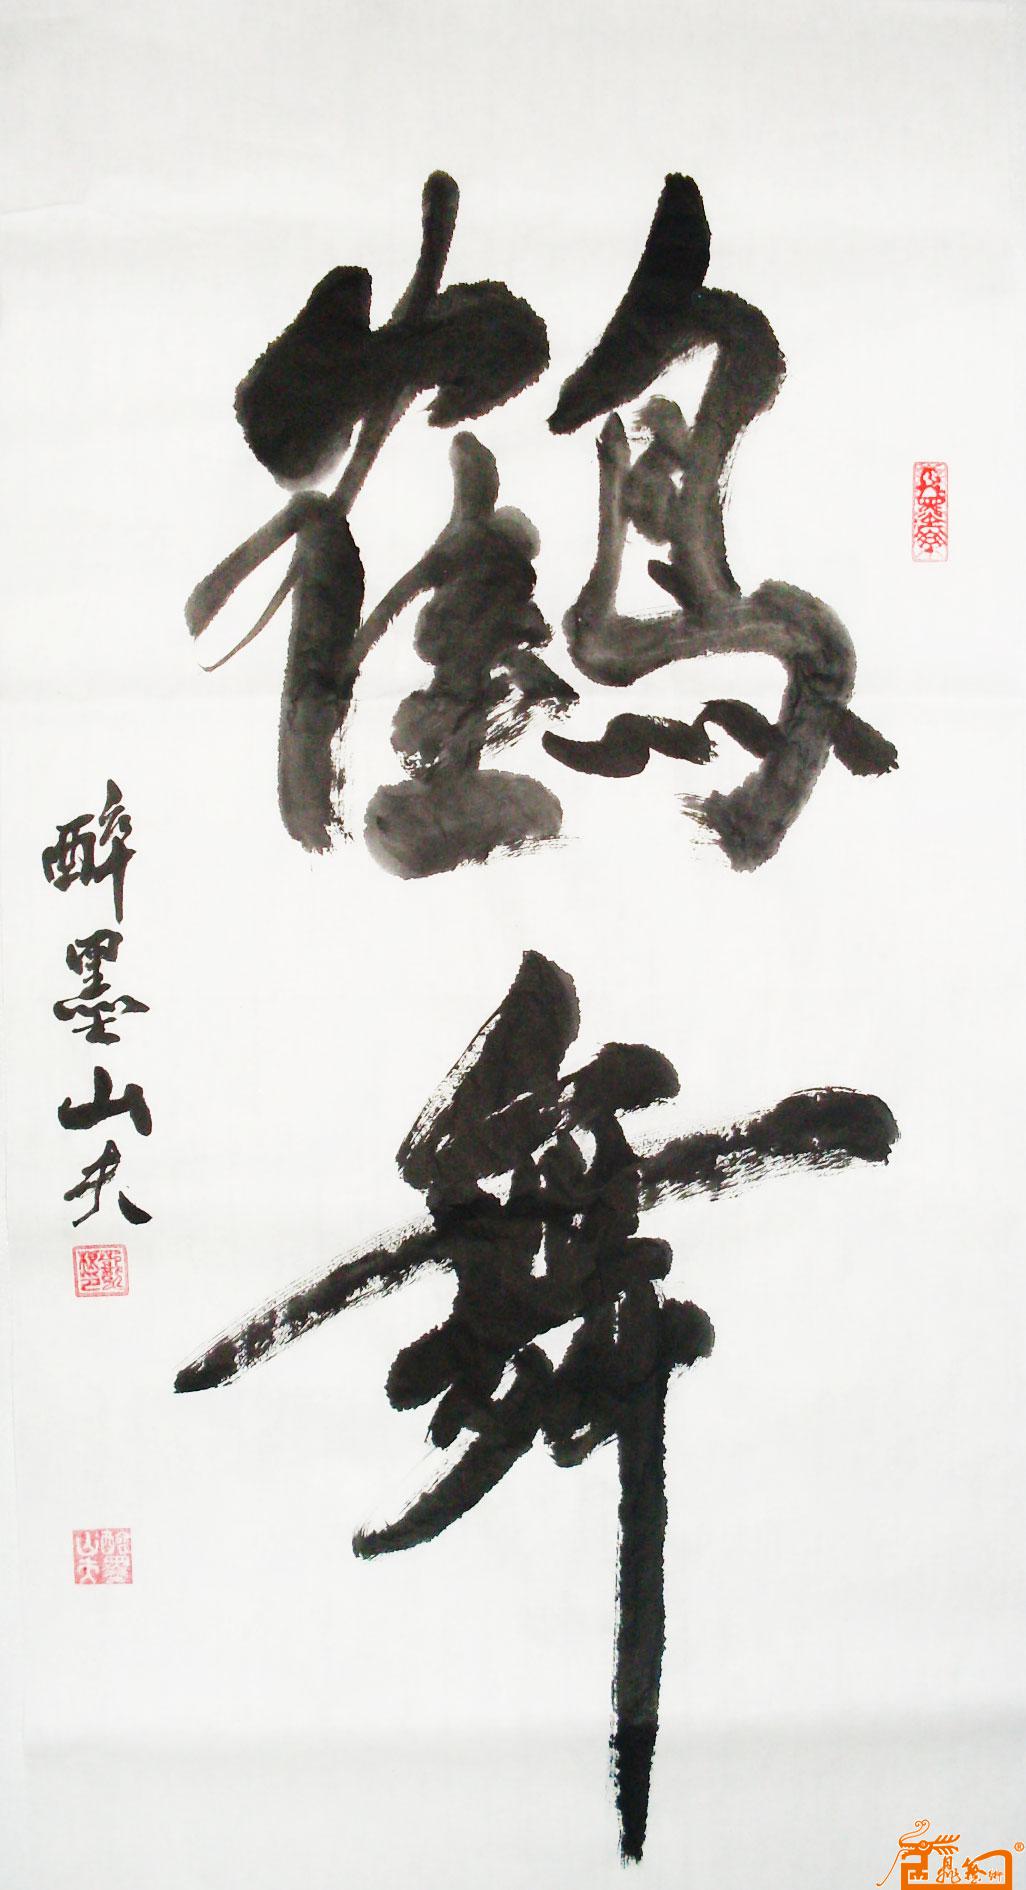 鶴舞
醉墨山夫
醉墨山夫